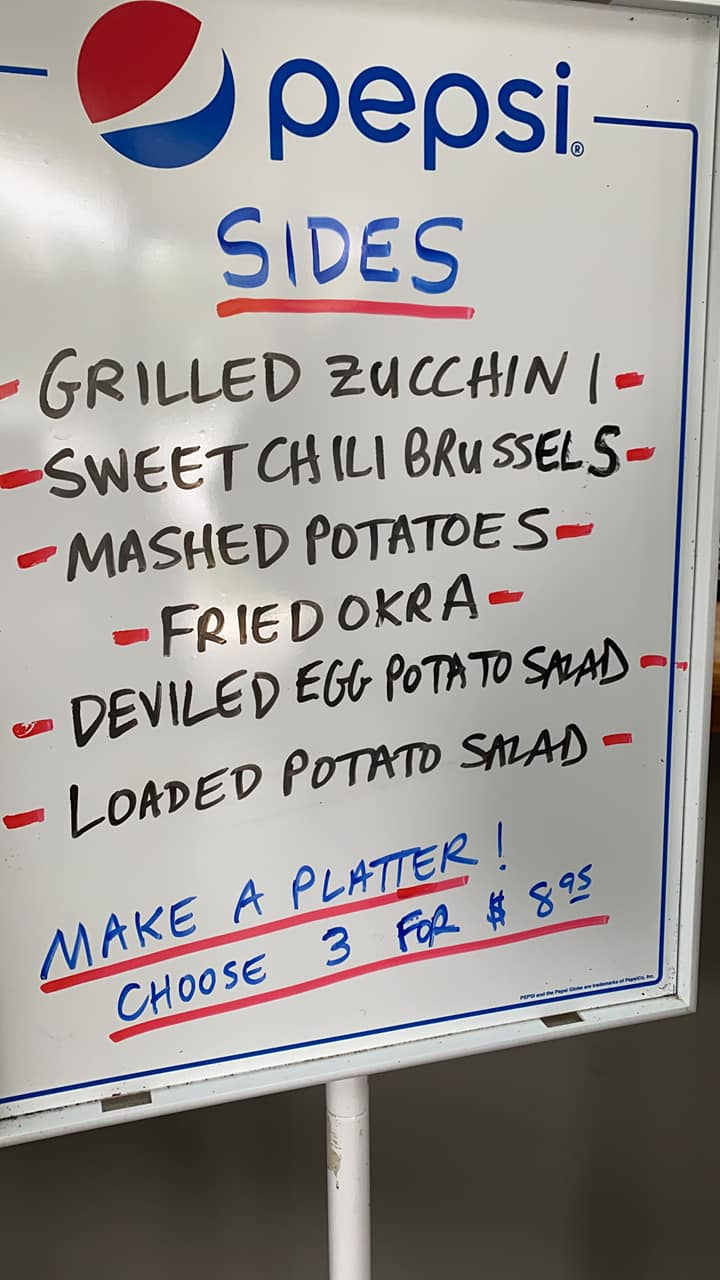 pepsi®
SIDES
- GRILLED ZUCCHINI -
- SWEET CHILI BRUSSELS -
- MASHED POTATOES -
- FRIED OKRA -
- DEVILED EGG POTATO SALAD -
- LOADED POTATO SALAD -
MAKE A PLATTER!
CHOOSE 3 FOR $8.95
PEPSI and the Pepsi Globe are trademarks of PepsiCo, Inc.